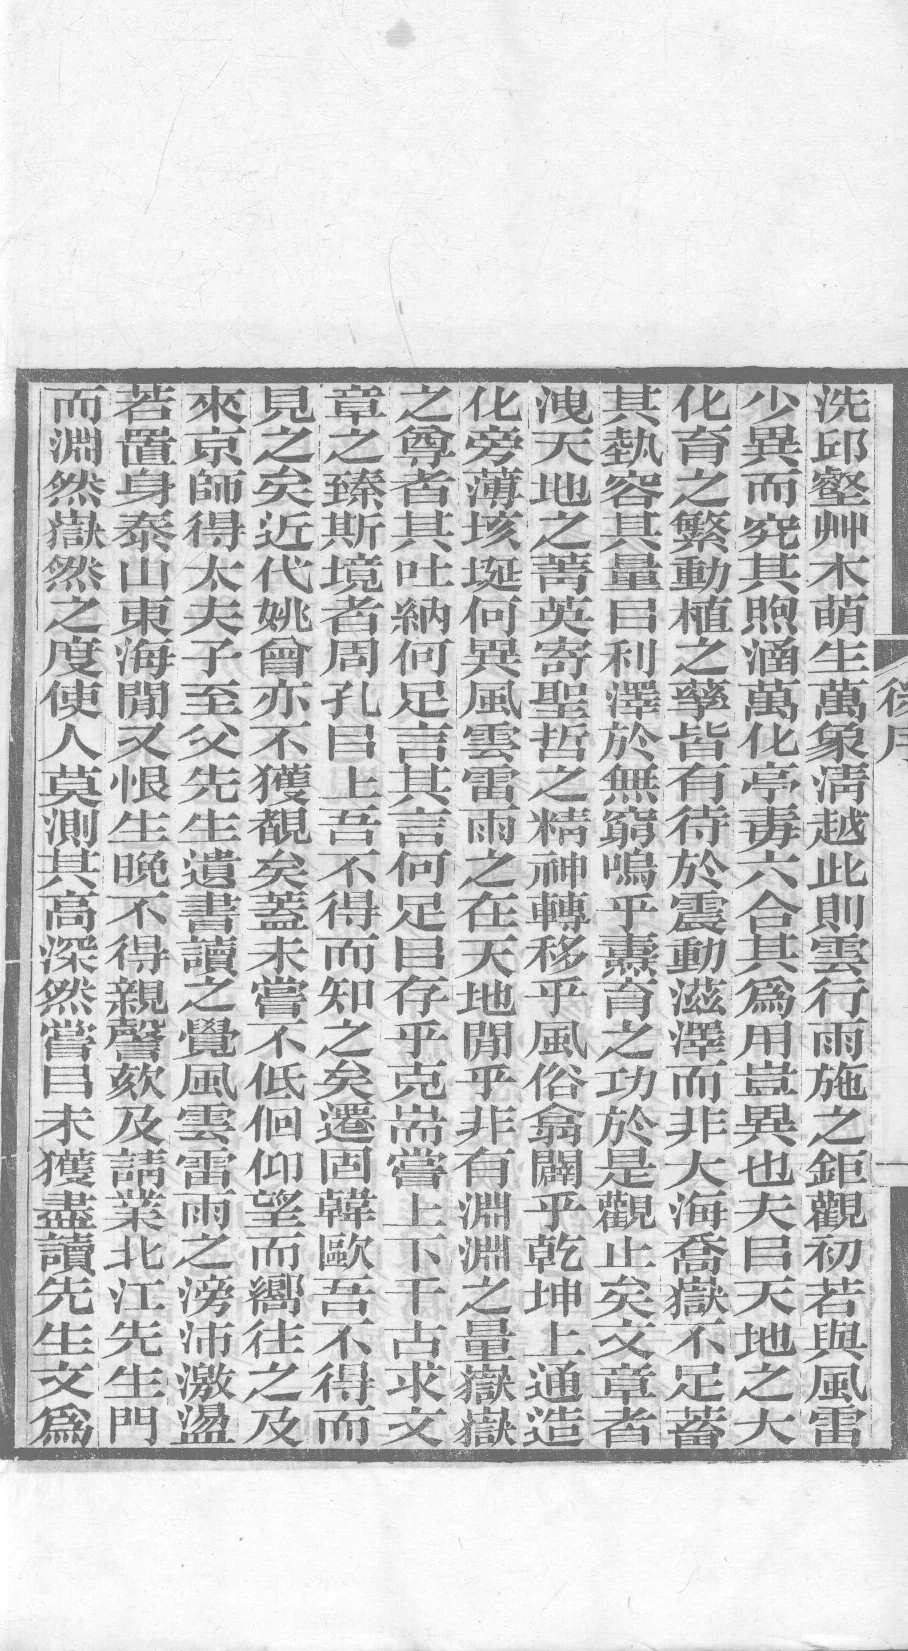 後序
一
洗邱壑艸木萌生萬象淸越此則雲行雨施之鉅觀初若與風雷
少異而究其煦涵萬化亭毒六合其爲用豈異也夫㠯天地之大
化育之繁動植之孳皆有待於震動滋澤而非大海喬嶽不足蓄
其埶容其量㠯利澤於無窮嗚乎燾育之功於是觀止矣文章者
洩天地之菁英寄聖哲之精神轉移乎風俗翕闢乎乾坤上通造
化旁薄垓埏何異風雲雷雨之在天地閒乎非有淵淵之量嶽嶽
之尊者其吐納何足言其言何足㠯存乎克耑嘗上下千古求文
章之臻斯境者周孔㠯上吾不得而知之矣遷固韓歐吾不得而
見之矣近代姚曾亦不獲覩矣蓋未嘗不低佪仰望而嚮往之及
來京師得太夫子至父先生遺書讀之覺風雲雷雨之滂沛激盪
若置身泰山東海閒又恨生晚不得親謦欬及請業北江先生門
而淵然嶽然之度使人莫測其高深然嘗㠯未獲盡讀先生文爲